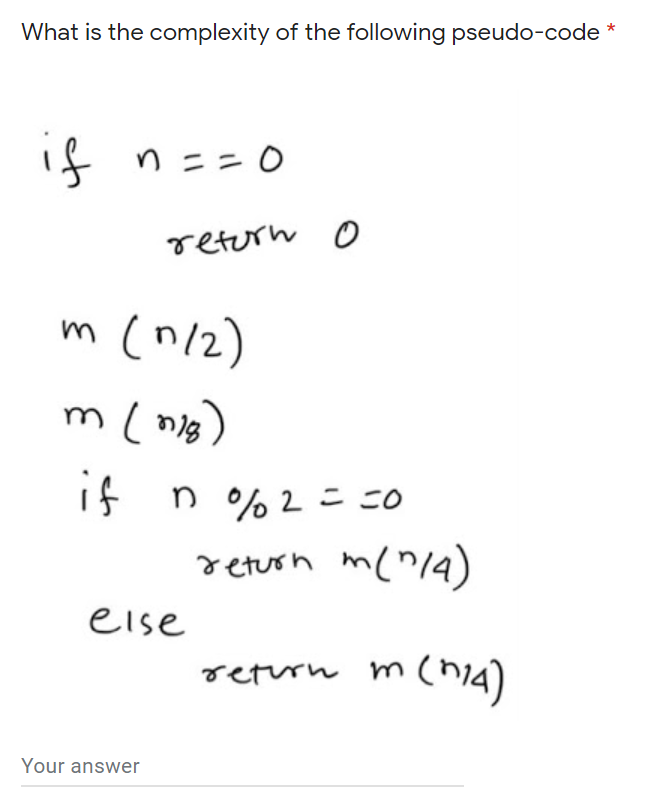 What is the complexity of the following pseudo-code *
if n == 0
return 0
m (n/2)
m (n/8)
if n % 2 == 0
return m(n/4)
else
return m (n/4)
Your answer